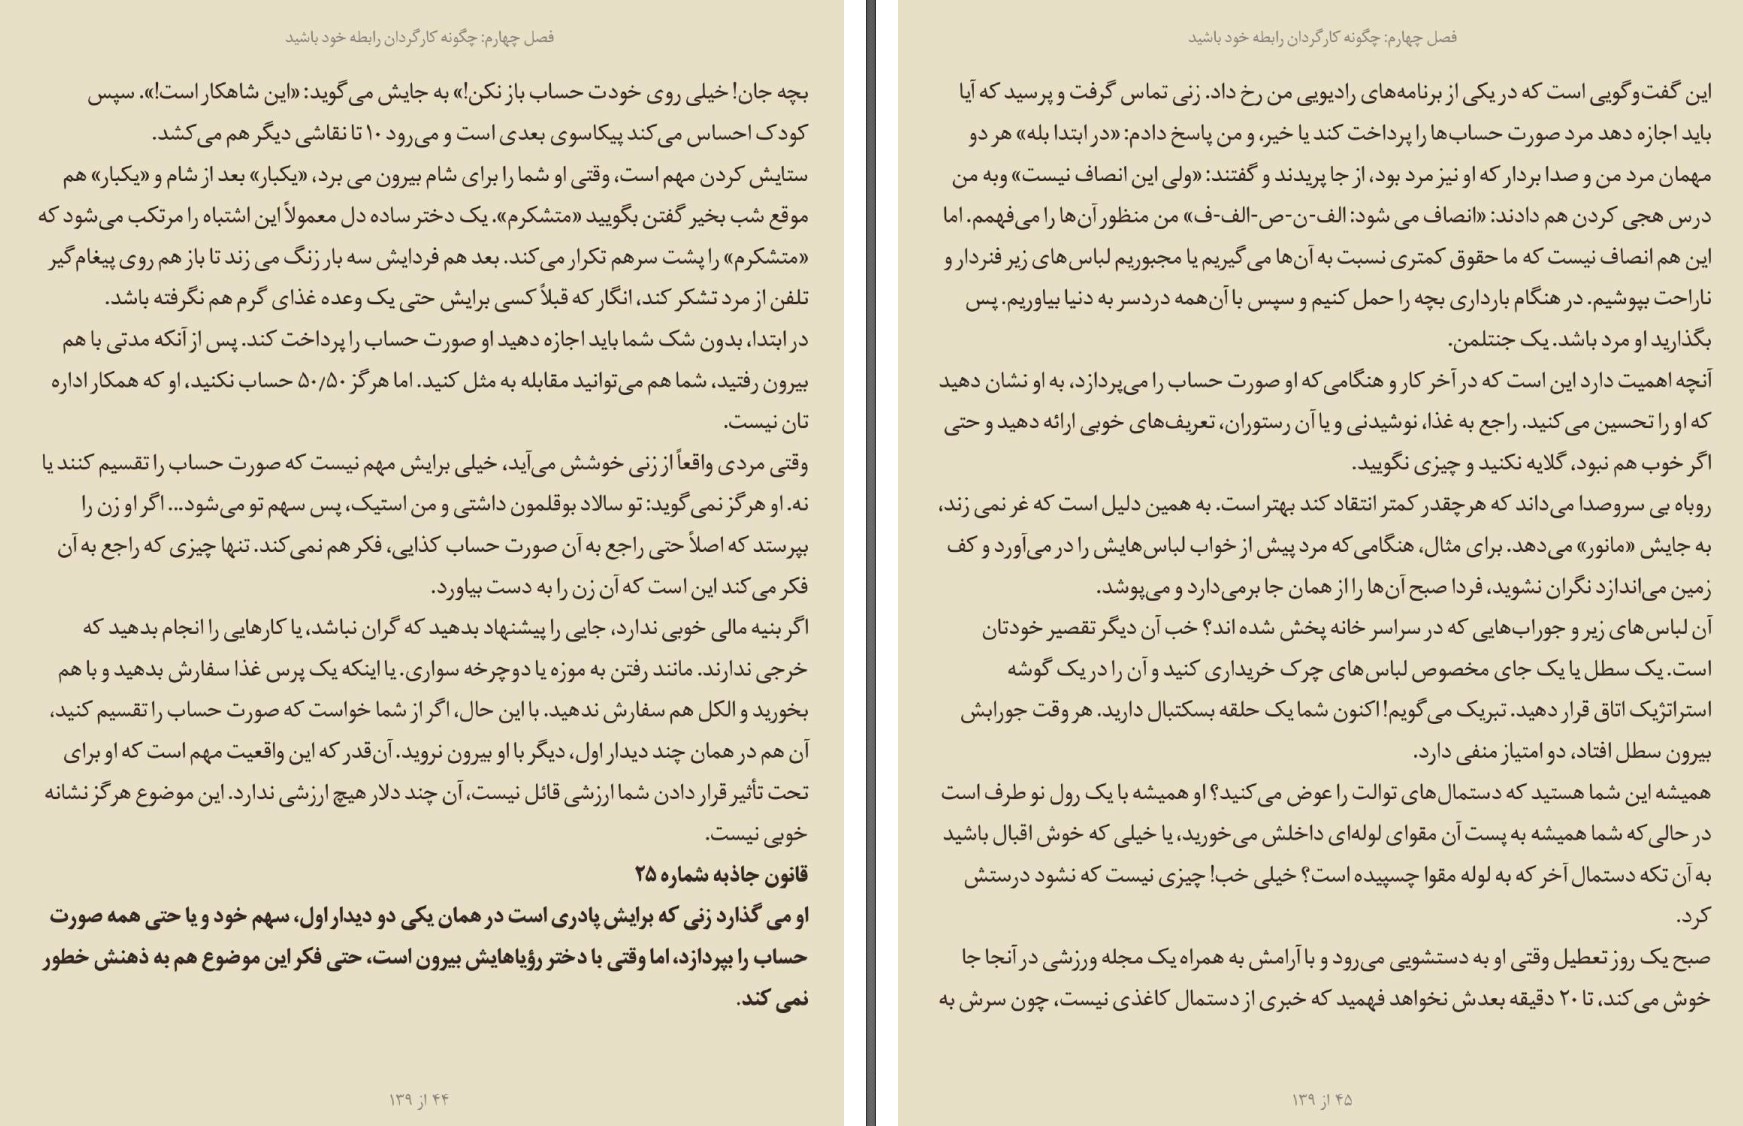 فصل چهارم: چگونه کارگردان رابطه خود باشید
بچه جان! خیلی روی خودت حساب باز نکن!» به جایش می‌گوید: «این شاهکار است!». سپس
کودک احساس می‌کند پیکاسوی بعدی است و می‌رود ۱۰ تا نقاشی دیگر هم می‌کشد.
ستایش کردن مهم است، وقتی او شما را برای شام بیرون می برد، «یکبار» بعد از شام و «یکبار» هم
موقع شب بخیر گفتن بگویید «متشکرم». یک دختر ساده دل معمولاً این اشتباه را مرتکب می‌شود که
«متشکرم» را پشت سرهم تکرار می‌کند. بعد هم فردایش سه بار زنگ می زند تا باز هم روی پیغام‌گیر
تلفن از مرد تشکر کند، انگار که قبلاً کسی برایش حتی یک وعده غذای گرم هم نگرفته باشد.
در ابتدا، بدون شک شما باید اجازه دهید او صورت حساب را پرداخت کند. پس از آنکه مدتی با هم
بیرون رفتید، شما هم می‌توانید مقابله به مثل کنید. اما هرگز ۵۰/۵۰ حساب نکنید، او که همکار اداره
تان نیست.
وقتی مردی واقعاً از زنی خوشش می‌آید، خیلی برایش مهم نیست که صورت حساب را تقسیم کنند یا
نه. او هرگز نمی‌گوید: تو سالاد بوقلمون داشتی و من استیک، پس سهم تو می‌شود... اگر او زن را
بپرستد که اصلاً حتی راجع به آن صورت حساب کذایی، فکر هم نمی‌کند. تنها چیزی که راجع به آن
فکر می‌کند این است که آن زن را به دست بیاورد.
اگر بنیه مالی خوبی ندارد، جایی را پیشنهاد بدهید که گران نباشد، یا کارهایی را انجام بدهید که
خرجی ندارند. مانند رفتن به موزه یا دوچرخه سواری. یا اینکه یک پرس غذا سفارش بدهید و با هم
بخورید و الکل هم سفارش ندهید. با این حال، اگر از شما خواست که صورت حساب را تقسیم کنید،
آن هم در همان چند دیدار اول، دیگر با او بیرون نروید. آن‌قدر که این واقعیت مهم است که او برای
تحت تأثیر قرار دادن شما ارزشی قائل نیست، آن چند دلار هیچ ارزشی ندارد. این موضوع هرگز نشانه
خوبی نیست.
قانون جاذبه شماره ۲۵
او می گذارد زنی که برایش پادری است در همان یکی دو دیدار اول، سهم خود و یا حتی همه صورت
حساب را بپردازد، اما وقتی با دختر رؤیاهایش بیرون است، حتی فکر این موضوع هم به ذهنش خطور
نمی کند.
۴۴ از ۱۳۹
فصل چهارم: چگونه کارگردان رابطه خود باشید
این گفت‌وگویی است که در یکی از برنامه‌های رادیویی من رخ داد. زنی تماس گرفت و پرسید که آیا
باید اجازه دهد مرد صورت حساب‌ها را پرداخت کند یا خیر، و من پاسخ دادم: «در ابتدا بله» هر دو
مهمان مرد من و صدا بردار که او نیز مرد بود، از جا پریدند و گفتند: «ولی این انصاف نیست» وبه من
درس هجی کردن هم دادند: «انصاف می شود: الف-ن-ص-الف-ف» من منظور آن‌ها را می‌فهمم. اما
این هم انصاف نیست که ما حقوق کمتری نسبت به آن‌ها می‌گیریم یا مجبوریم لباس‌های زیر فنردار و
ناراحت بپوشیم. در هنگام بارداری بچه را حمل کنیم و سپس با آن‌همه دردسر به دنیا بیاوریم. پس
بگذارید او مرد باشد. یک جنتلمن.
آنچه اهمیت دارد این است که در آخر کار و هنگامی‌که او صورت حساب را می‌پردازد، به او نشان دهید
که او را تحسین می‌کنید. راجع به غذا، نوشیدنی و یا آن رستوران، تعریف‌های خوبی ارائه دهید و حتی
اگر خوب هم نبود، گلایه نکنید و چیزی نگویید.
روباه بی سروصدا می‌داند که هرچقدر کمتر انتقاد کند بهتر است. به همین دلیل است که غر نمی زند،
به جایش «مانور» می‌دهد. برای مثال، هنگامی‌که مرد پیش از خواب لباس‌هایش را در می‌آورد و کف
زمین می‌اندازد نگران نشوید، فردا صبح آن‌ها را از همان جا برمی‌دارد و می‌پوشد.
آن لباس‌های زیر و جوراب‌هایی که در سراسر خانه پخش شده اند؟ خب آن دیگر تقصیر خودتان
است. یک سطل یا یک جای مخصوص لباس‌های چرک خریداری کنید و آن را در یک گوشه
استراتژیک اتاق قرار دهید. تبریک می‌گویم! اکنون شما یک حلقه بسکتبال دارید. هر وقت جورابش
بیرون سطل افتاد، دو امتیاز منفی دارد.
همیشه این شما هستید که دستمال‌های توالت را عوض می‌کنید؟ او همیشه با یک رول نو طرف است
در حالی‌که شما همیشه به پست آن مقوای لوله‌ای داخلش می‌خورید، یا خیلی که خوش اقبال باشید
به آن تکه دستمال آخر که به لوله مقوا چسپیده است؟ خیلی خب! چیزی نیست که نشود درستش
کرد.
صبح یک روز تعطیل وقتی او به دستشویی می‌رود و با آرامش به همراه یک مجله ورزشی در آنجا جا
خوش می‌کند، تا ۲۰ دقیقه بعدش نخواهد فهمید که خبری از دستمال کاغذی نیست، چون سرش به
۴۵ از ۱۳۹